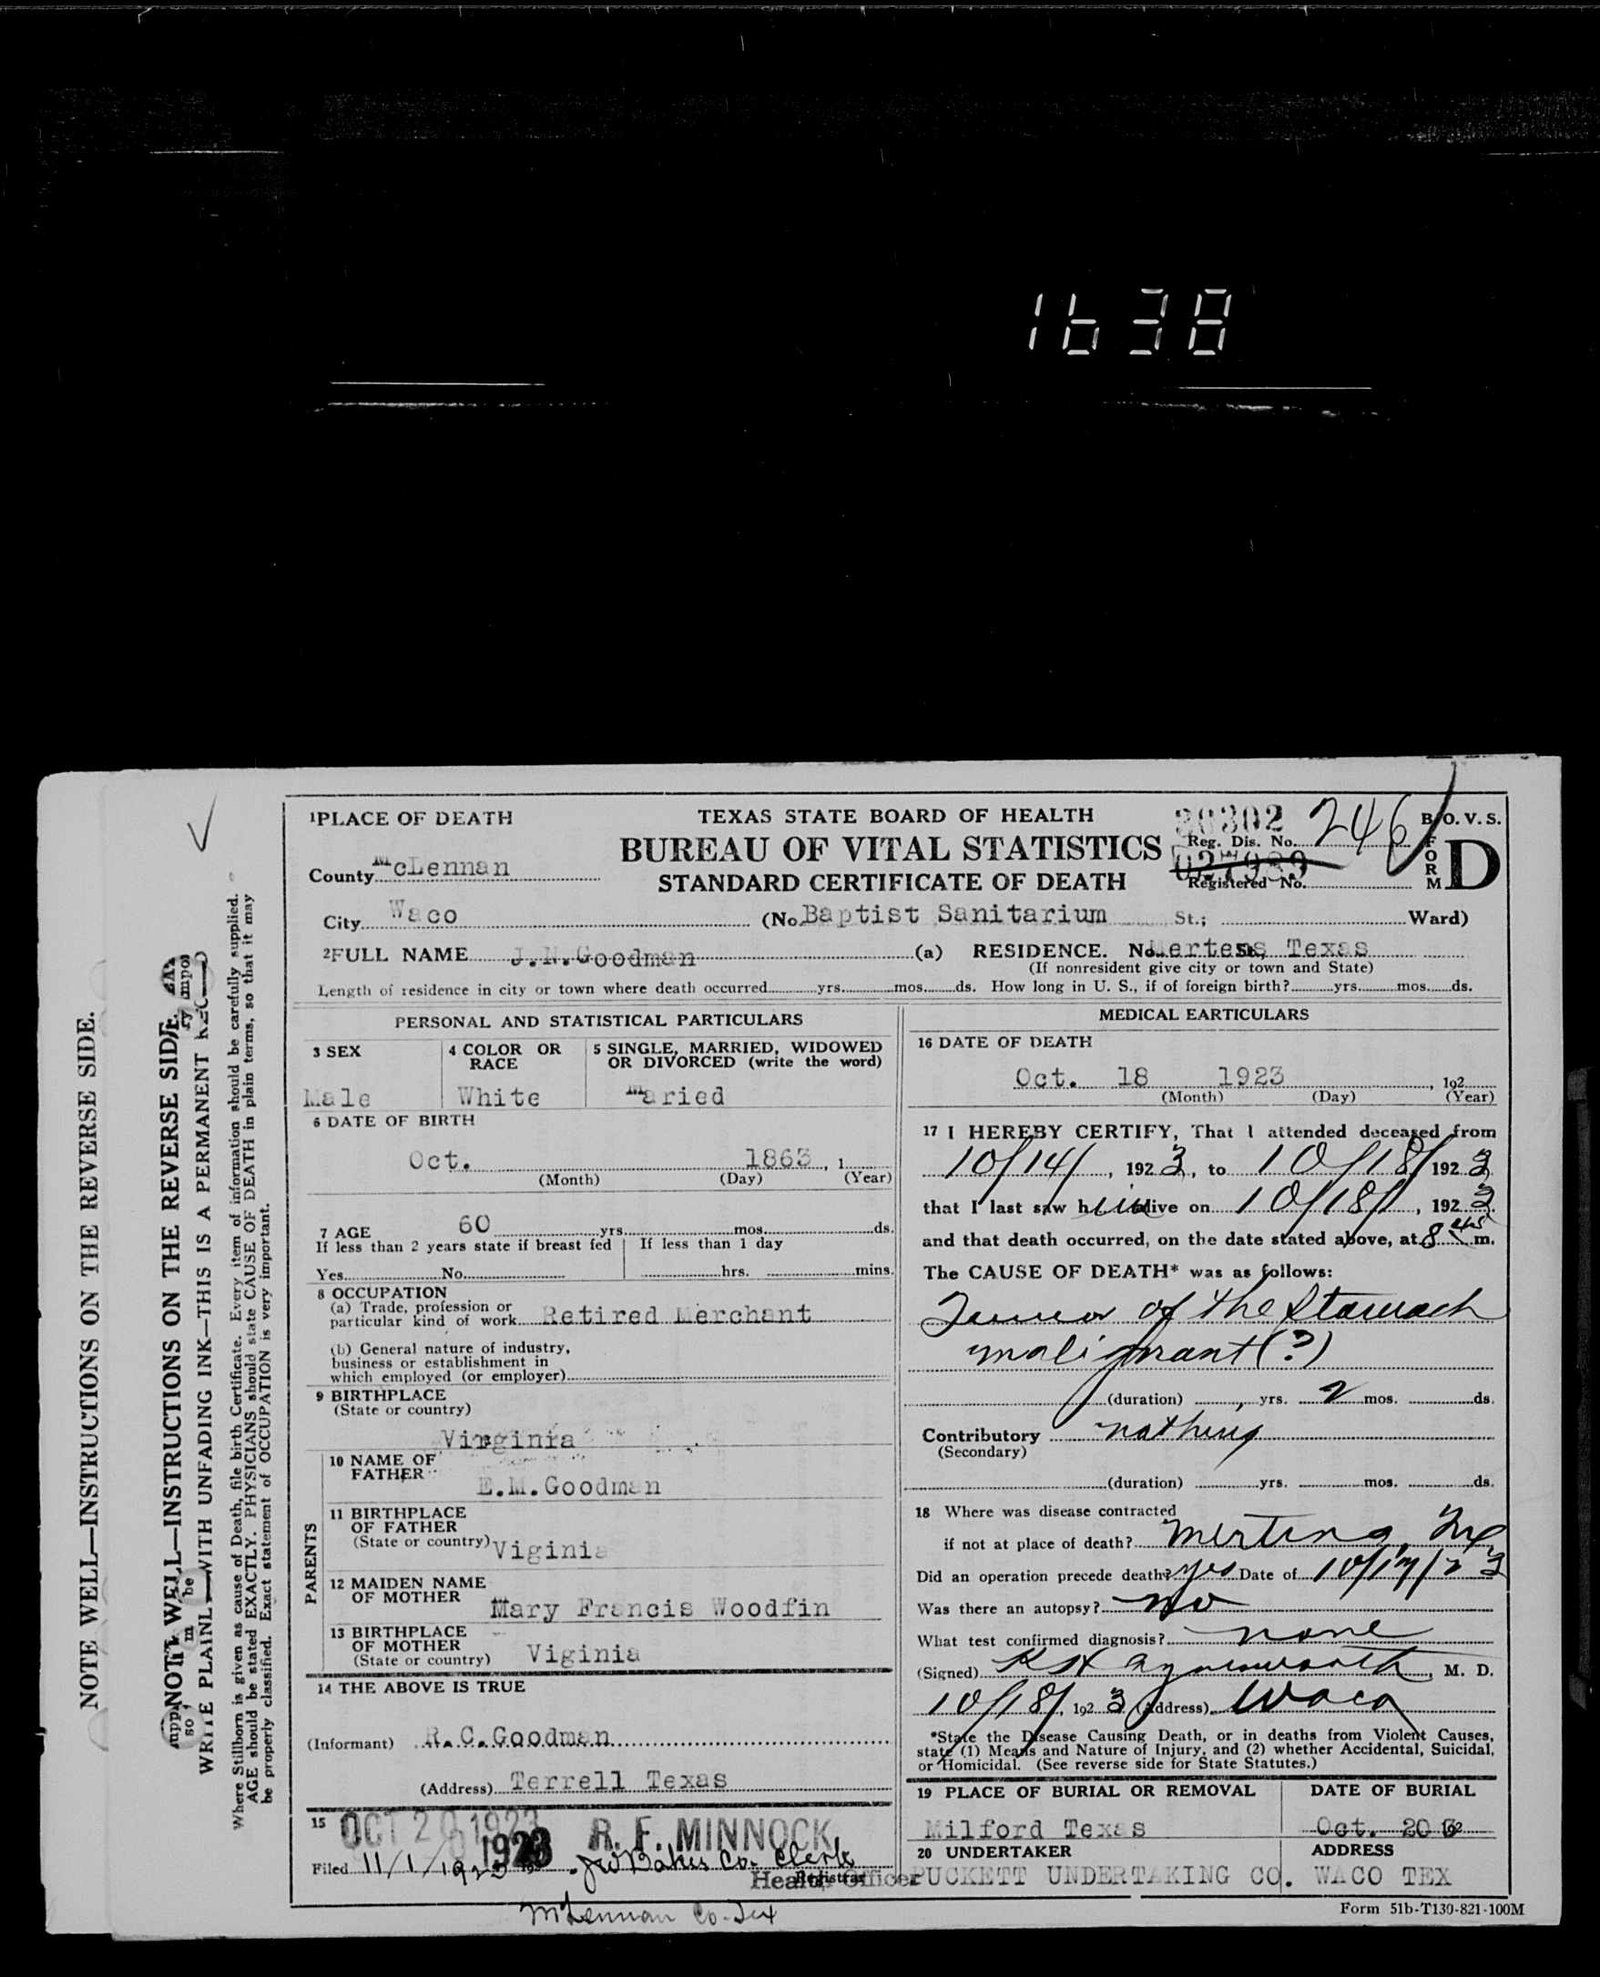 1638
NOTE WELL—INSTRUCTIONS ON THE REVERSE SIDE.
WELL—INSTRUCTIONS ON THE REVERSE SIDE.
WRITE PLAINL—WITH UNFADING INK—THIS IS A PERMANENT
Where Stillborn is given as cause of Death, file birth Certificate. Every item of information should be carefully supplied.
AGE should be stated EXACTLY. PHYSICIANS should state CAUSE OF DEATH in plain terms, so that it may
be properly classified. Exact statement of OCCUPATION is very important.
1PLACE OF DEATH
TEXAS STATE BOARD OF HEALTH
BUREAU OF VITAL STATISTICS
STANDARD CERTIFICATE OF DEATH
Reg. Dis. No. 246
Registered No.
B. O. V. S.
FORM D
County McLennan
City Waco (No Baptist Sanitarium St.; Ward)
2FULL NAME J.N.Goodman (a) RESIDENCE. No. Mertens St, Texas
(If nonresident give city or town and State)
Length of residence in city or town where death occurred yrs. mos. ds. How long in U. S., if of foreign birth? yrs. mos. ds.
PERSONAL AND STATISTICAL PARTICULARS
3 SEX
Male
4 COLOR OR RACE
White
5 SINGLE, MARRIED, WIDOWED
OR DIVORCED (write the word)
Maried
6 DATE OF BIRTH
Oct. 1863, 1
(Month) (Day) (Year)
7 AGE 60 yrs. mos. ds.
If less than 2 years state if breast fed
Yes No
If less than 1 day
hrs. mins.
8 OCCUPATION
(a) Trade, profession or
particular kind of work Retired Merchant
(b) General nature of industry,
business or establishment in
which employed (or employer)
9 BIRTHPLACE
(State or country)
Virginia
PARENTS
10 NAME OF
FATHER
E.M.Goodman
11 BIRTHPLACE
OF FATHER
(State or country) Viginia
12 MAIDEN NAME
OF MOTHER
Mary Francis Woodfin
13 BIRTHPLACE
OF MOTHER
(State or country) Viginia
14 THE ABOVE IS TRUE
(Informant) R.C.Goodman
(Address) Terrell Texas
15 OCT 20 1923 R. F. MINNOCK
Filed 11/1/1923 1923 Co. Clerk
Registrar
Health Officer
McLennan Co. Tex
MEDICAL EARTICULARS
16 DATE OF DEATH
Oct. 18 1923, 192
(Month) (Day) (Year)
17 I HEREBY CERTIFY, That I attended deceased from
10/14/, 1923, to 10/18/ 1923
that I last saw him alive on 10/18/, 1923
and that death occurred, on the date stated above, at 8 45 m.
The CAUSE OF DEATH* was as follows:
Tumor of the Stomach
malignant (?)
(duration) yrs. 2 mos. ds.
Contributory nothing
(Secondary)
(duration) yrs. mos. ds.
18 Where was disease contracted
if not at place of death? Tex
Did an operation precede death? yes Date of 10/17/23
Was there an autopsy? no
What test confirmed diagnosis? none
(Signed) K H Aynesworth, M. D.
10/18/, 1923 (Address) Waco
*State the Disease Causing Death, or in deaths from Violent Causes,
state (1) Means and Nature of Injury, and (2) whether Accidental, Suicidal,
or Homicidal. (See reverse side for State Statutes.)
19 PLACE OF BURIAL OR REMOVAL
Milford Texas
DATE OF BURIAL
Oct. 20
20 UNDERTAKER
PUCKETT UNDERTAKING CO.
ADDRESS
WACO TEX
Form 51b-T130-821-100M